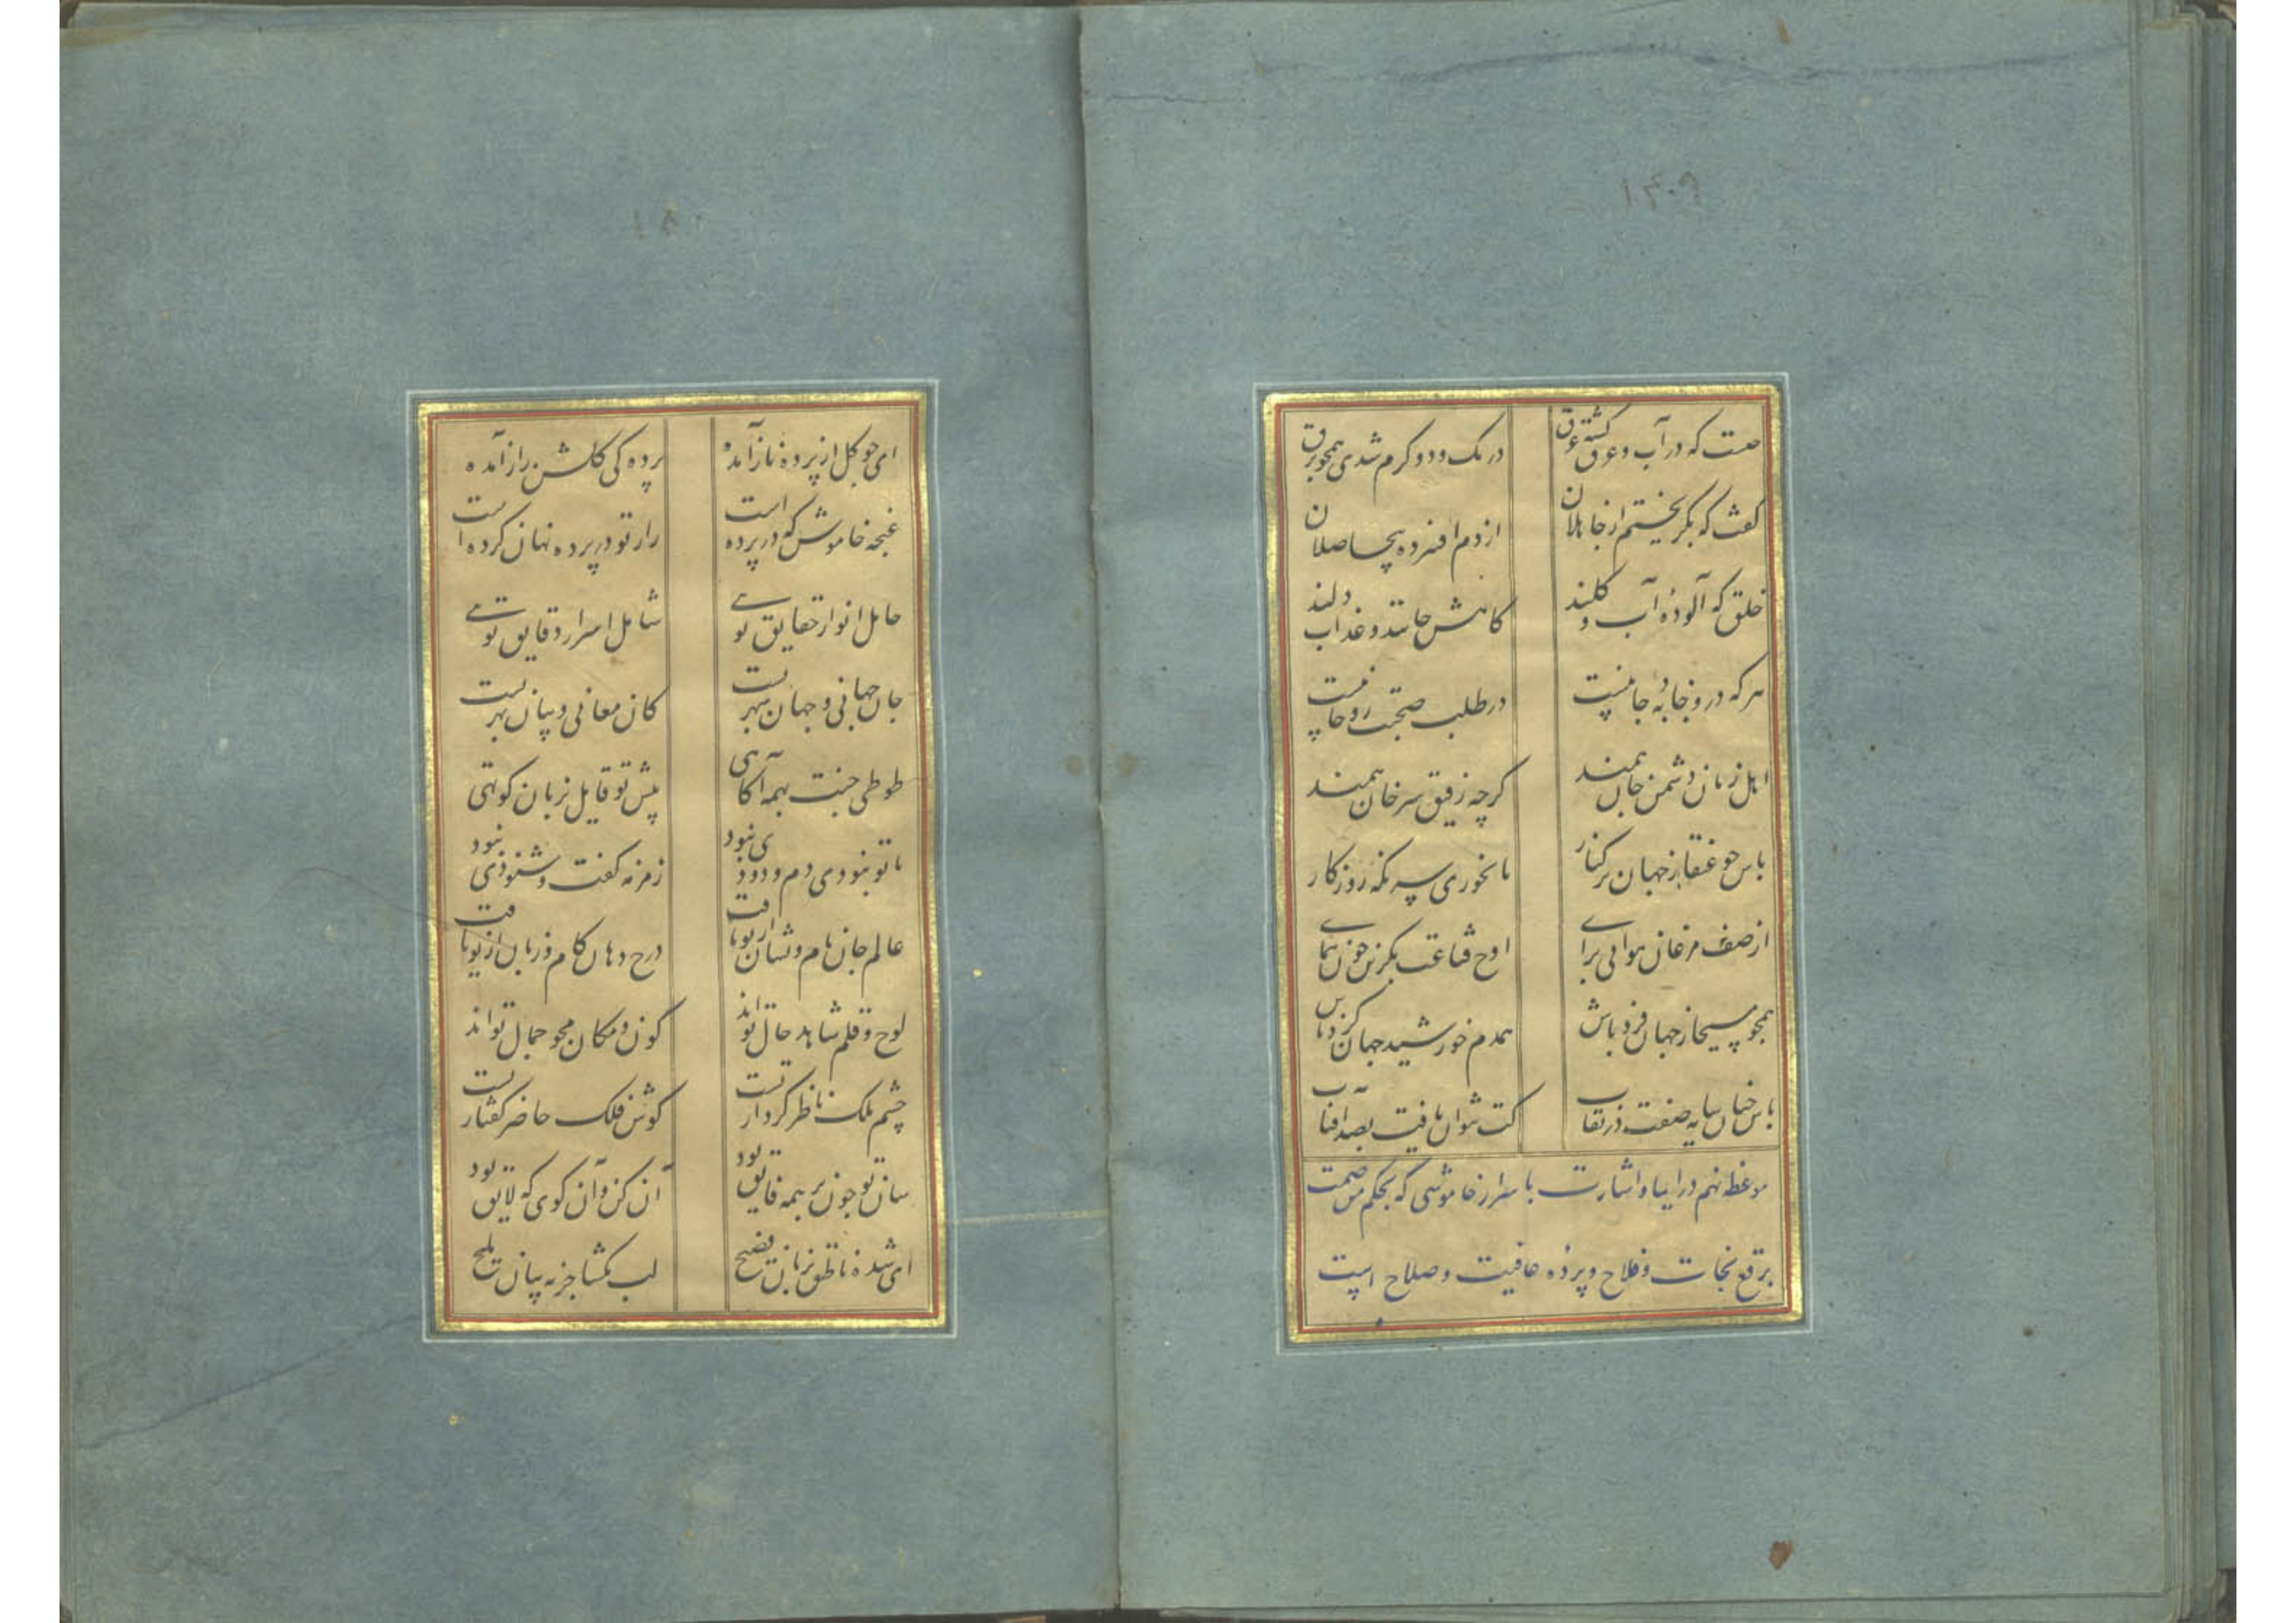 چیست که در آب و عرق گشته غرق
در تک و دو گرم شدی همچو برق
گفت که بگریختم از جاهلان
از دم افسرده بیحاصلان
خلق که آلودهٔ آب و گلند
کاهش جانند و عذاب دلند
هر که درو جاذبهٔ جانیست
در طلب صحبت روحانیست
اهل زمان دشمن جان همند
گرچه رفیق سر خوان همند
باش چو عنقا ز جهان بر کنار
تا نخوری سر تکه روزگار
از صف مرغان هوایی برای
اوج قناعت بگزین چون همای
همچو مسیحا ز جهان فرد باش
همدم خورشید جهان گرد باش
باش چنان سایه صفت در نقاب
کت نتوان یافت بصد آفتاب
موعظه نهم در ایما و اشارت با سرار خاموشی که بحکم من صمت
برقع نجات و فلاح و پردهٔ عافیت و صلاح است
۱۸۰
ای چو گل از پردهٔ ناز آمده
پرده کی گلشن راز آمده
غنچه خاموش که در پرده است
راز تو در پرده نهان کرده است
حامل انوار حقایق تویی
شامل اسرار دقایق تویی
جان جهانی و جهان بهر تست
کان معانی و بیان بهر تست
طوطی جنت بهمه آگاهی
پیش تو قایل بزبان کوتهی
تا تو نبودی دم و دودی نبود
زمزمه گفت و شنودی نبود
عالم جان نام و نشان از تو یافت
درج دهان کام و زبان از تو یافت
لوح و قلم شاهد حال تواند
کون و مکان محو جمال تواند
چشم ملک ناظر کردار تست
گوش فلک حاضر گفتار تست
سان تو چون بر همه فایق بود
آن کن و آن گوی که لایق بود
ای شده ناطق بزبان فصیح
لب مگشا جز به بیان ملیح